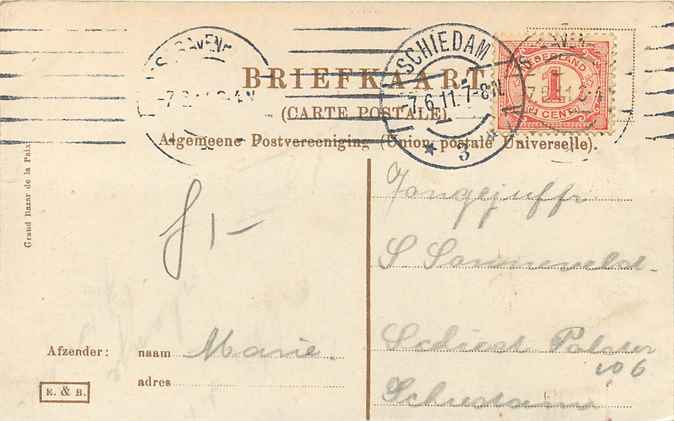 BRIEFKAART
(CARTE POSTALE)
Algemeene Postvereeniging (Union postale Universelle).
SCHIEDAM
-7.6.11.7-8N
* 3 *
NEDERLAND
1
CENT
Grand Bazar de la Paix
f 1-
Jongejuffr
S Sonneveld
Schiest Polder
106
Schiedam
Afzender: naam Marie.
adres
E. & B.